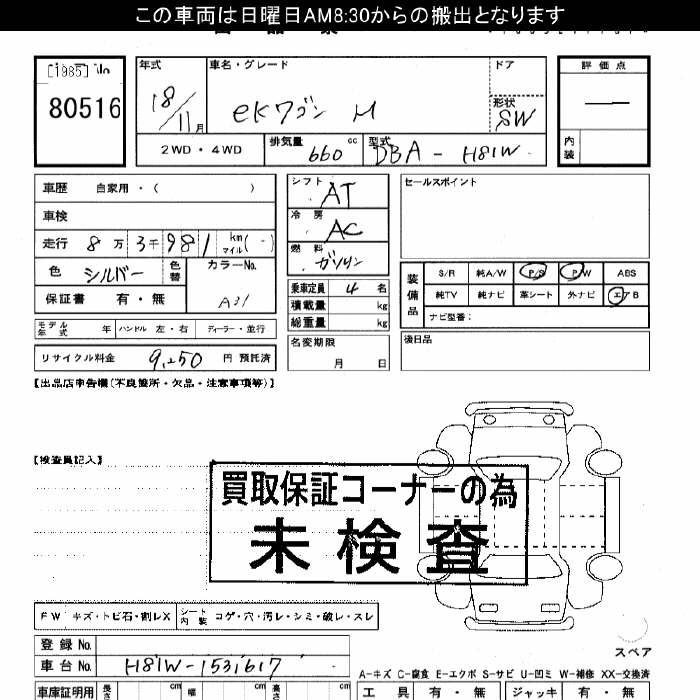 この車両は日曜日AM8:30からの搬出となります
[1985] No
80516
年式
18/11月
車名・グレード
eKワゴン M
ドア
形状
SW
評価点
内装
2WD・4WD
排気量
660 cc
型式
DBA-H81W
車歴 自家用・( )
車検
走行 8万3千981 km マイル(-)
色 シルバー
色替
カラーNo.
A31
保証書 有・無
シフト
AT
冷房
AC
燃料
ガソリン
乗車定員 4名
積載量 kg
総重量 kg
セールスポイント
装備品
S/R 純A/W P/S P/W ABS
純TV 純ナビ 革シート 外ナビ エアB
ナビ型番:
モデル年式 年 ハンドル 左・右 ディーラー・並行
リサイクル料金 9,250 円 預託済
名変期限
月 日
後日品
【出品店申告欄(不良箇所・欠品・注意事項等)】
【検査員記入】
買取保証コーナーの為
未検査
FW キズ・トビ石・割レX
シート内装 コゲ・穴・汚レ・シミ・破レ・スレ
登録No.
車台No. H81W-1531617
スペア
A-キズ C-腐食 E-エクボ S-サビ U-凹ミ W-補修 XX-交換済
車庫証明用 長さ cm 幅 cm 高さ cm
工具 有・無 ジャッキ 有・無